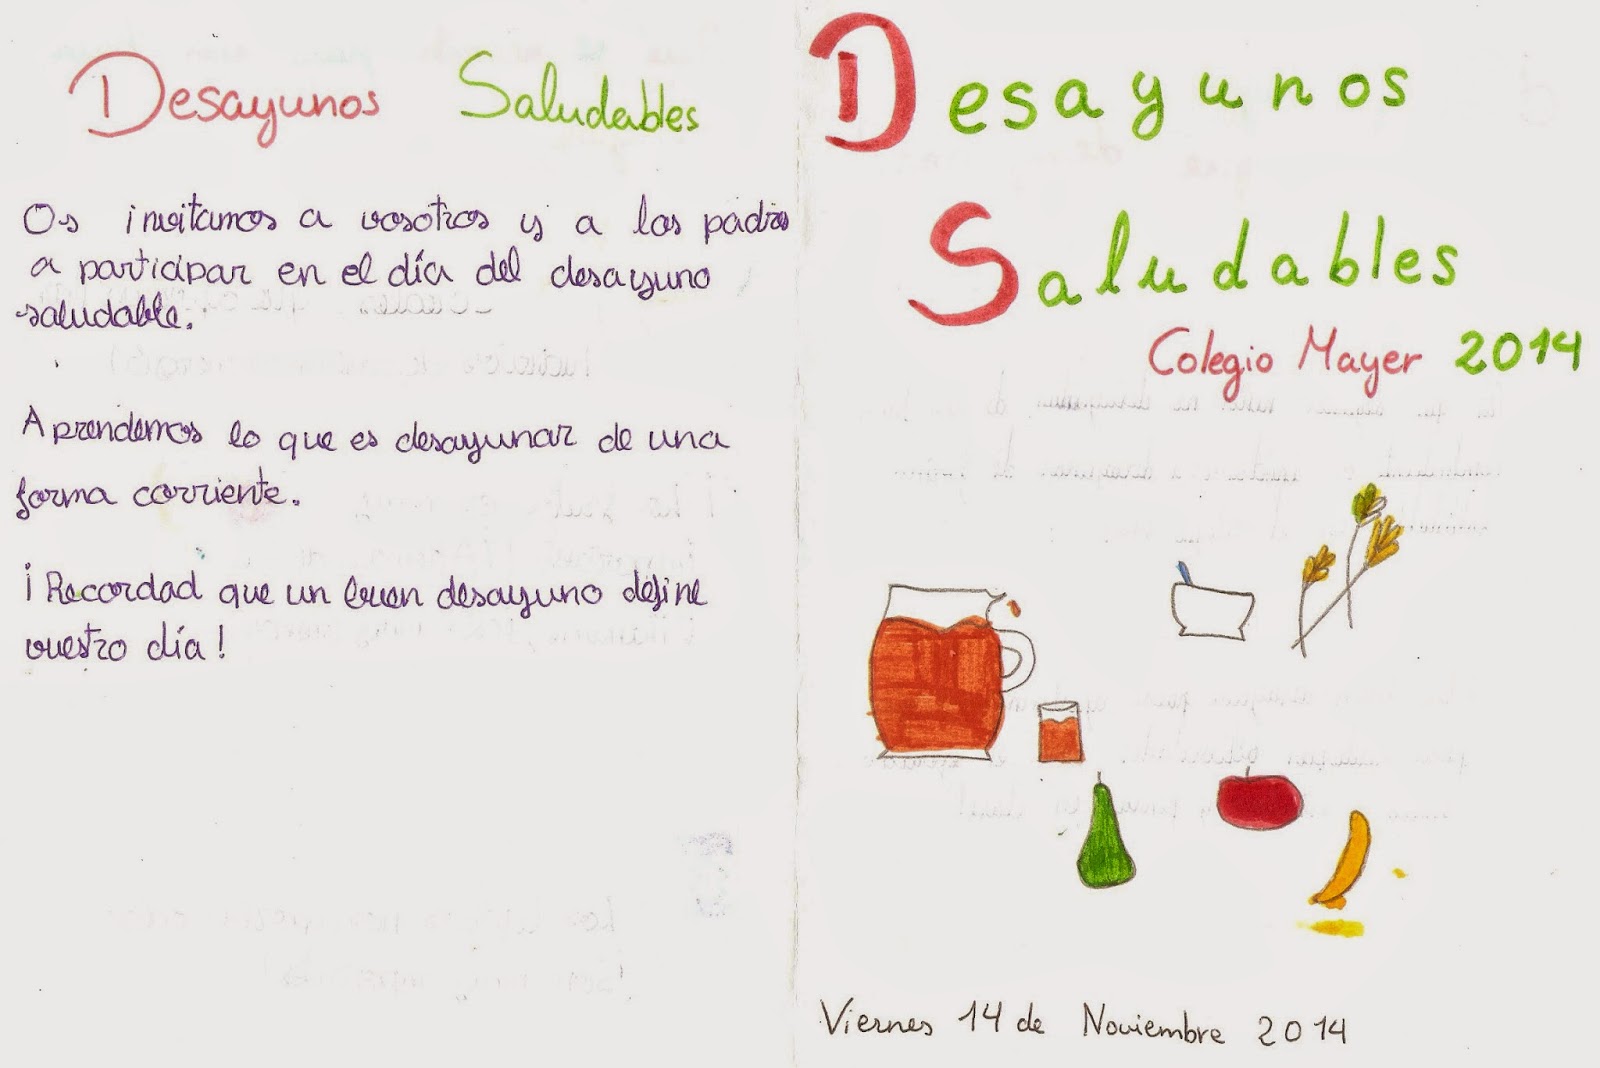 Desayunos Saludables
Os invitamos a vosotros y a los padres
a participar en el día del desayuno
saludable.
Aprendemos lo que es desayunar de una
forma corriente.
¡Recordad que un buen desayuno define
vuestro día!
Desayunos
Saludables
Colegio Mayer 2014
Viernes 14 de Noviembre 2014